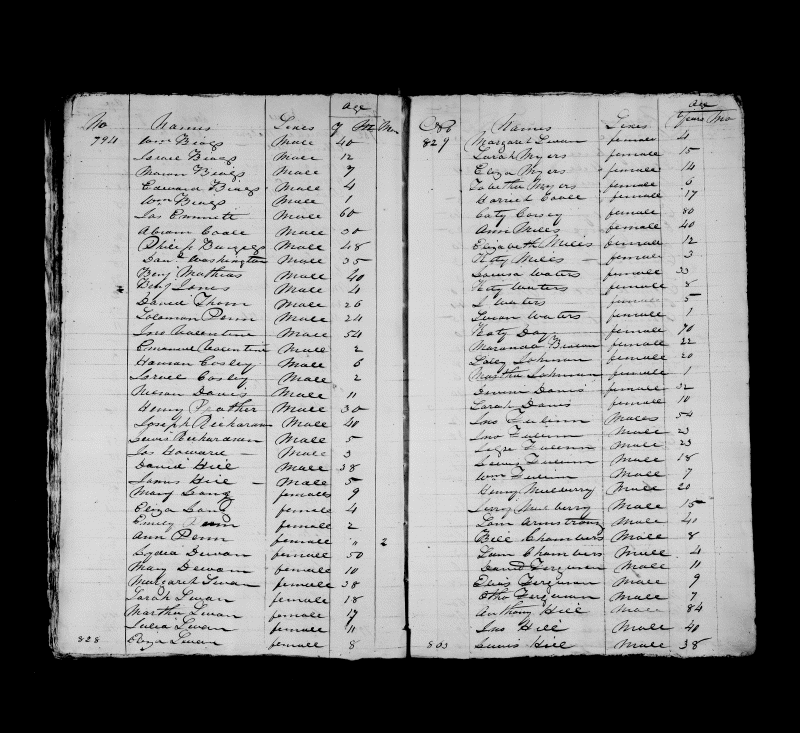 Age
No Names Sexes Y Mo
794 Wm Biays Male 40
Israel Biays Male 12
Mason Biays Male 7
Edward Biays Male 4
Wm Biays Male 1
Jas Emmett Male 60
Abram Coale Male 30
Philip Burgess Male 48
Danl Washington Male 35
Benj Mathias Male 40
Benj Jones Male 4
David Thorn Male 26
Solomon Penn Male 24
Jno Valentine Male 54
Emanuel Valentine Male 2
Hanson Cosley Male 6
Israel Cosley Male 2
Nelson Davis Male 11
Henry Prather Male 30
Joseph Richardson Male 40
Lewis Richardson Male 5
Jas Howard Male 3
David Hill Male 38
James Hill Male 5
Mary Sang female 9
Eliza Sang female 4
Emily Penn female 2
Ann Penn female " 2
Lydia Dewan female 50
Mary Dewan female 10
Margaret Swan female 38
Sarah Swan female 18
Martha Swan female 17
Julia Swan female 11
828 Eliza Swan female 8
Age
Names Sexes Years Mo
829 Margaret Swan female 4
Sarah Myers female 15
Eliza Myers female 14
Tabitha Myers female 6
Harriet Coale female 17
Caty Corsey female 80
Ann Mills female 40
Elizabeth Mills female 12
Kitty Mills female 3
Louisa Waters female 33
Kitty Waters female 8
J Waters female 5
Susan Waters female 1
Katy Day female 70
Maranda female 22
Johnson female 20
Martha Johnson female 1
Davis female 32
Sarah Davis female 10
Jno Males 54
Jno Male 23
Male 23
Lewis Male 18
Wm Male 7
Henry Mulberry Male 20
Jerry Mulberry Male 15
Sam Armstrong Male 41
Bill Chambers Male 8
Sam Chambers Male 4
David Ferguson Male 11
Elias Ferguson Male 9
Otho Ferguson Male 7
Anthony Hill Male 84
Jno Hill Male 40
863 Lewis Hill Male 38